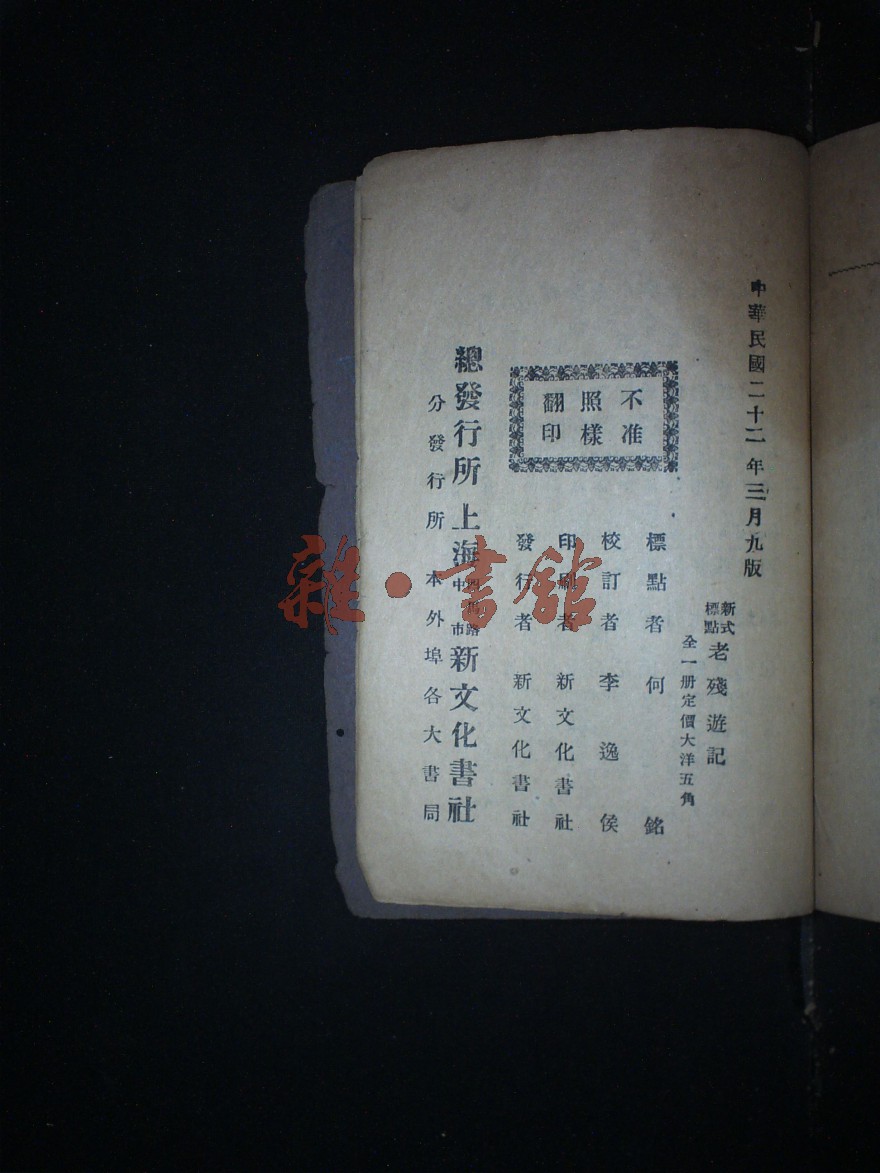 中華民國二十二年三月九版
新式標點 老殘遊記
全一册定價大洋五角
不准照樣翻印
標點者 何銘
校訂者 李逸侯
印刷者 新文化書社
發行者 新文化書社
總發行所 上海 中市 新文化書社
分發行所 本外埠各大書局
雜·書館